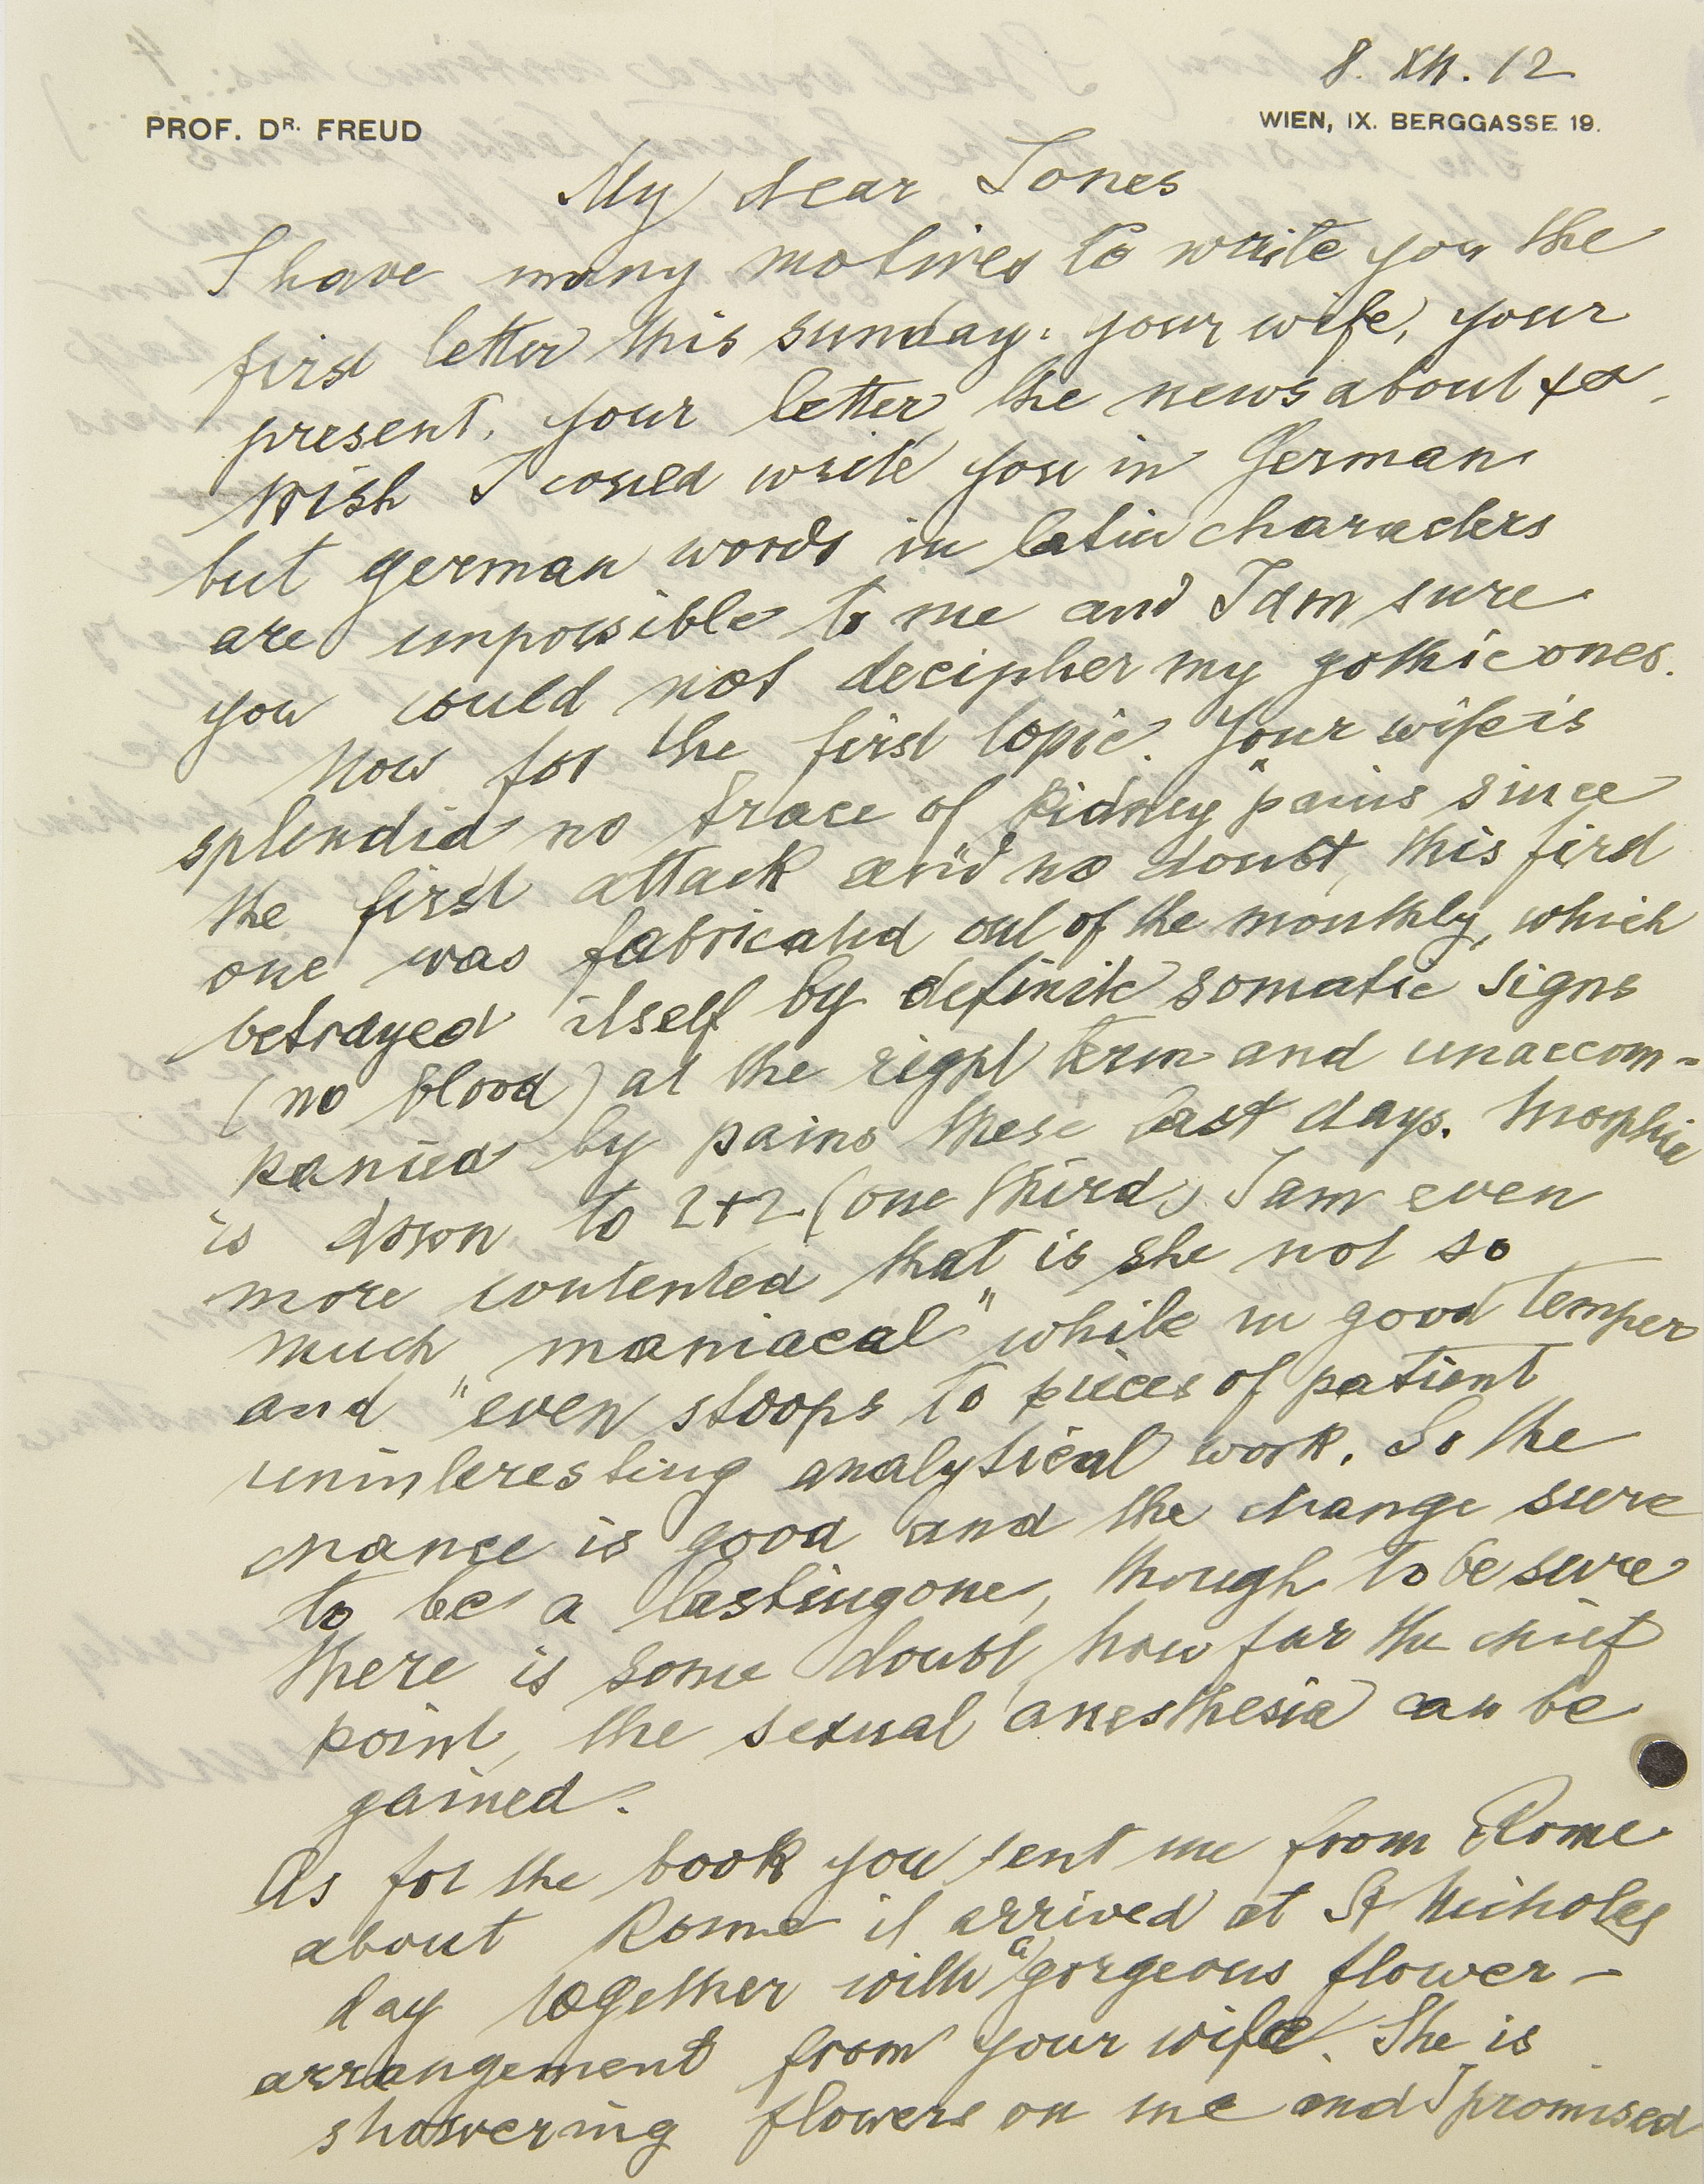 8. XII. 12
PROF. DR. FREUD
WIEN, IX. BERGGASSE 19.
My dear Jones
I have many motives to write you the
first letter this sunday: your wife, your
present, your letter, the news about
Wish I could write you in German
but german words in latin characters
are impossible to me and I am sure
you could not decipher my gothic ones.
Now for the first topic. Your wife is
splendid no trace of "kidney" pains since
the first attack and no doubt, this first
one was fabricated out of the monthly, which
betrayed itself by definite somatic signs
(no blood) at the right term and unaccom-
panied by pains these last days. Morphia
is down to 2+2 (one third) I am even
more contented that is she not so
much "maniacal" while in good temper
and even stoops to pieces of patient
uninteresting analytical work. So the
chance is good and the change sure
to be a lasting one, though to be sure
there is some doubt, how far the chief
point, the sexual anesthesia can be
gained.
As for the book you sent me from Rome
about Rome it arrived at St Nicholas
day together with a gorgeous flower-
arrangement from your wife. She is
showering flowers on me and I promised